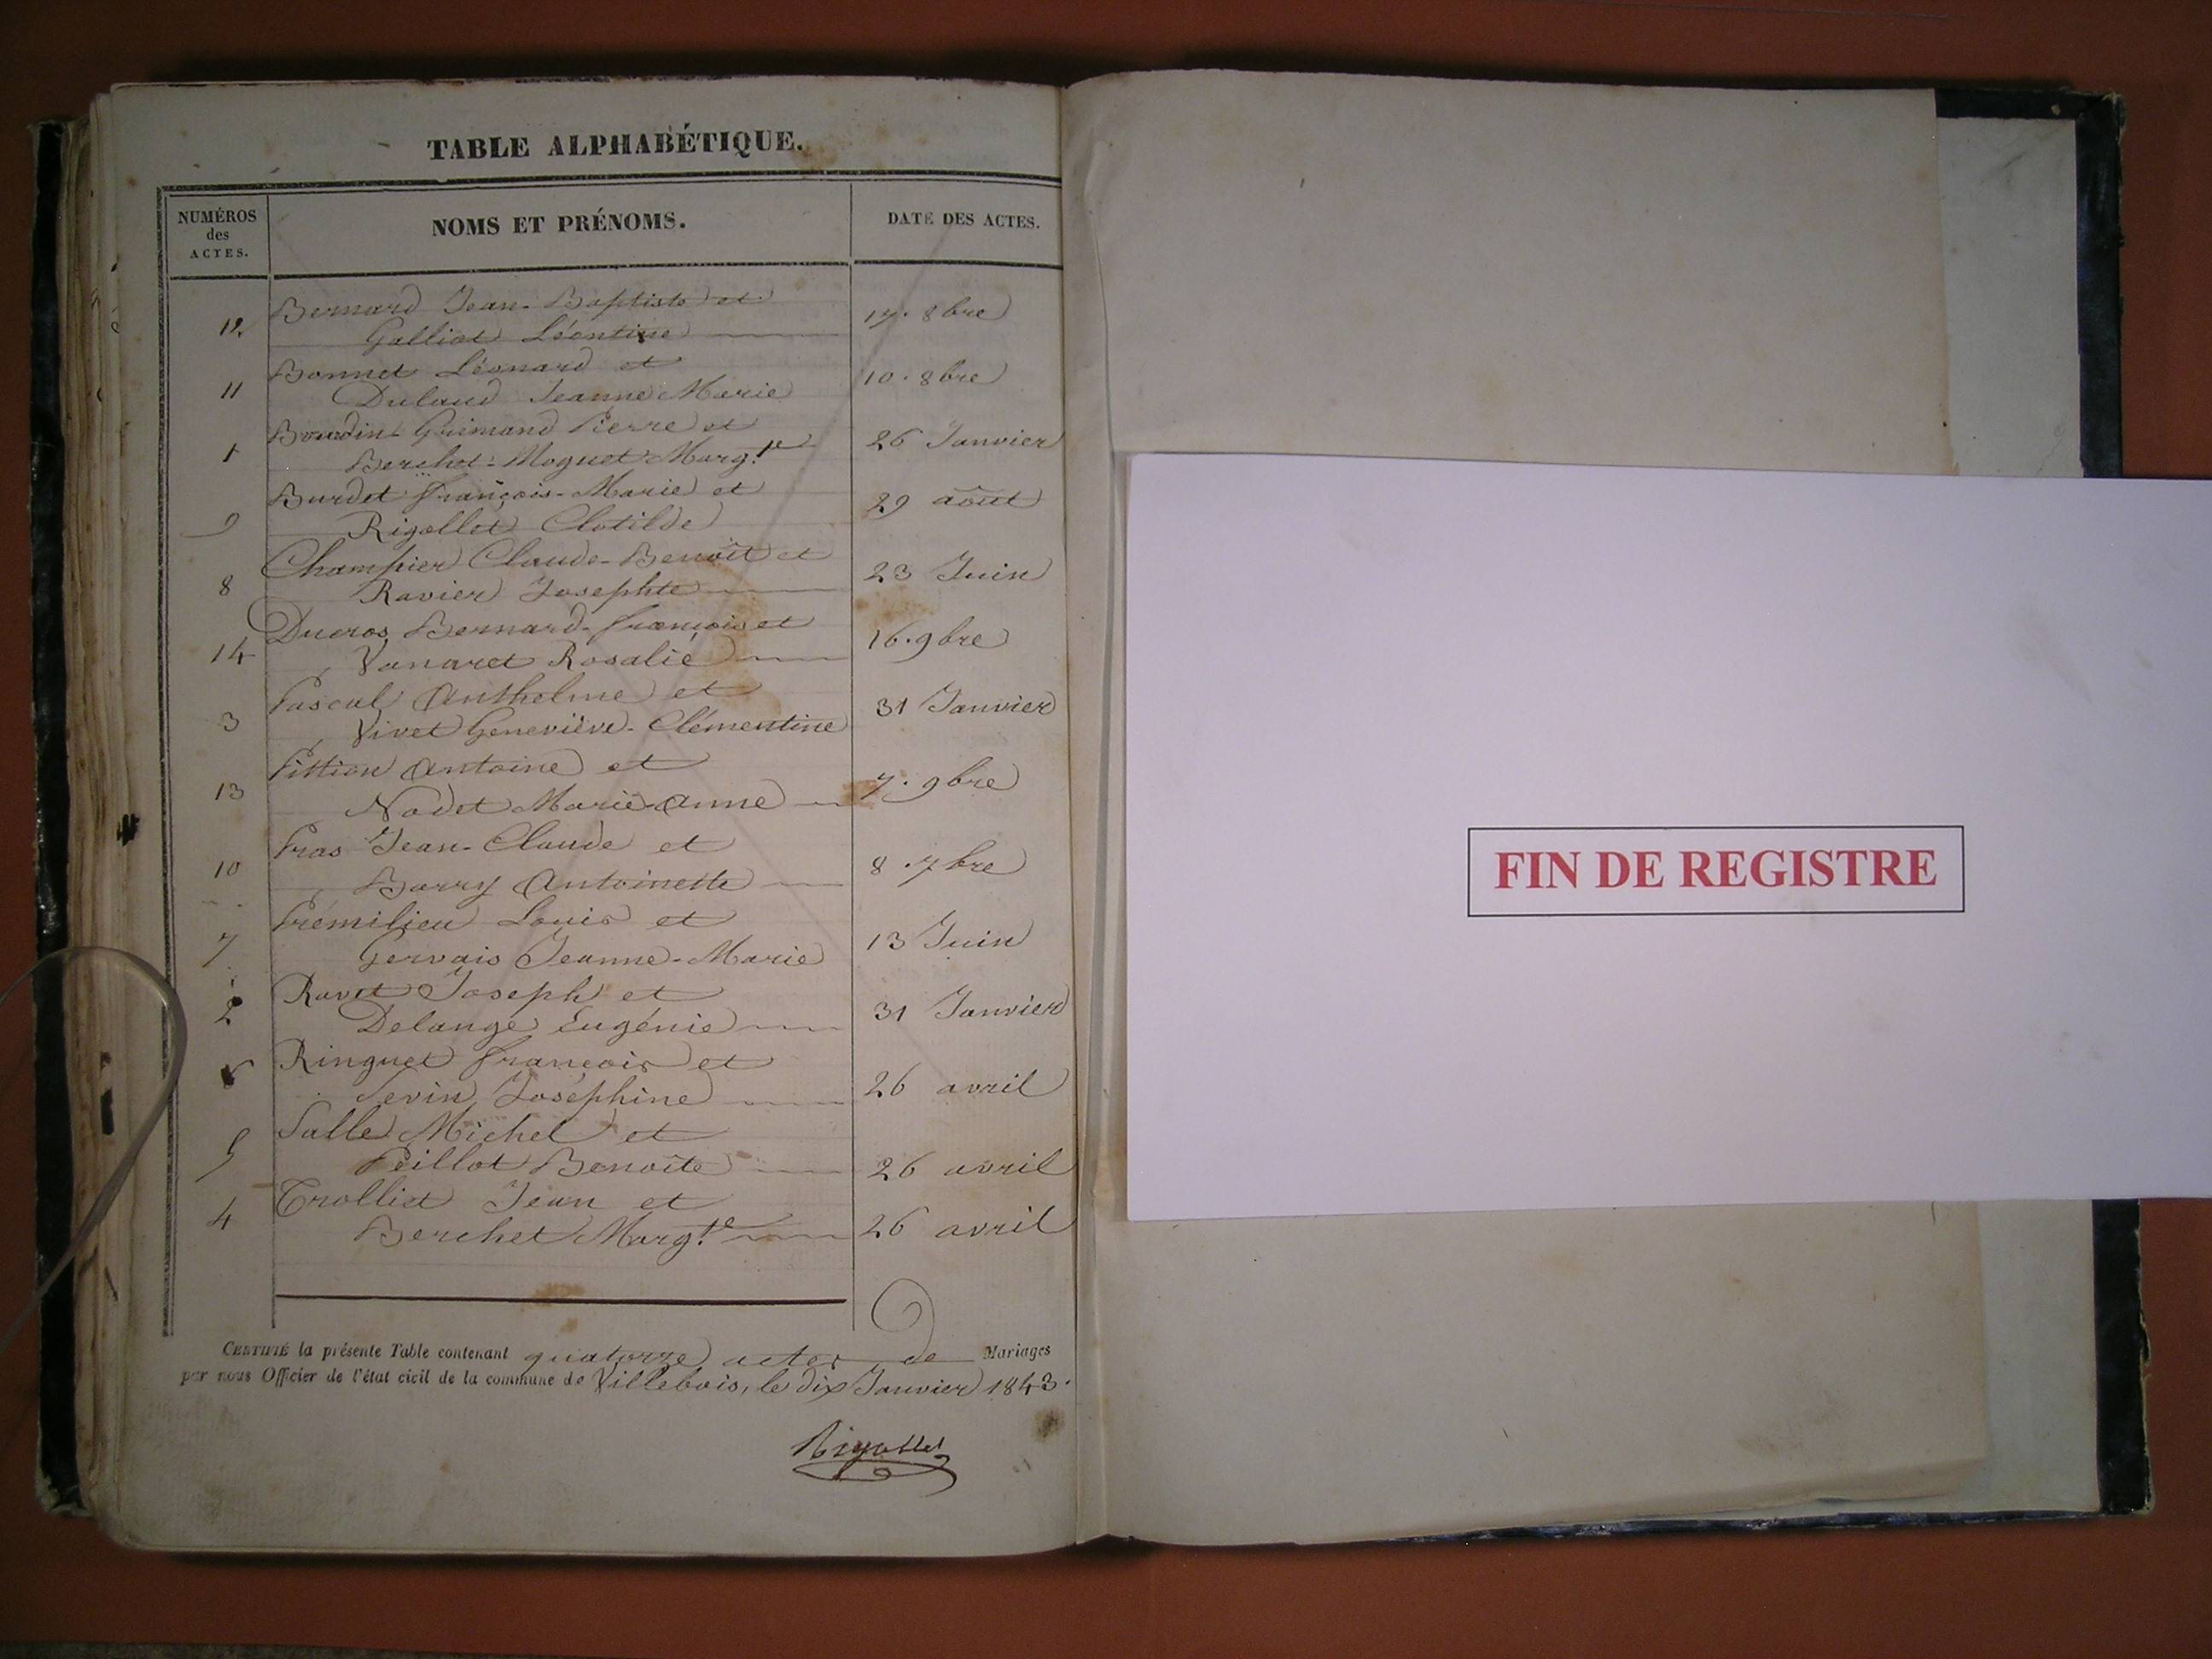 TABLE ALPHABÉTIQUE.
NUMÉROS des ACTES.
NOMS ET PRÉNOMS.
DATE DES ACTES.
Bernard Jean-Baptiste et
12 Galliat Léontine 17. 8bre
Bonnet Léonard et
11 Dulaud Jeanne Marie 10. 8bre
Bourdin Grimand Pierre et
1 Berchet-Moguet Marg.te 26 Janvier
Burdet françois-Marie et
9 Rigollet Clotilde 29 août
Champier Claude-Benoît et
8 Ravier Josephte 23 Juin
Ducros Bernard-françois et
14 Vanaret Rosalie 16. 9bre
Pascal Anthelme et
3 Vivet Geneviève-Clémentine 31 Janvier
Pittion Antoine et
13 Nodet Marie-anne 7. 9bre
Pras Jean-Claude et
10 Barry Antoinette 8. 7bre
Prémilieu Louis et
7 Gervais Jeanne-Marie 13 Juin
Ravet Joseph et
2 Delange Eugénie 31 Janvier
Ringuet françois et
Sevin Joséphine 26 avril
Salle Michel et
5 Peillot Benoîte 26 avril
Trolliet Jean et
4 Berchet Marg.te 26 avril
CERTIFIÉ la présente Table contenant quatorze actes de Mariages
par nous Officier de l'état civil de la commune de Villebois, le dix Janvier 1843.
Rigollet
FIN DE REGISTRE